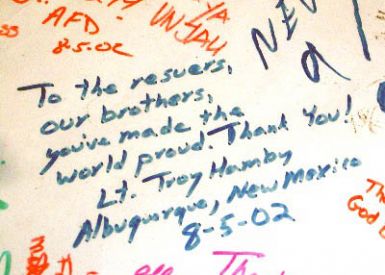 AFD
8-5-02
To the resuers,
our brothers,
you've made the
world proud. Thank You!
Lt. Troy Hamby
Albuqurque, New Mexico
8-5-02